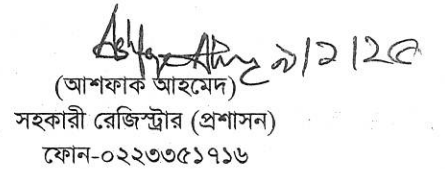 ৯/২/২৫
(আশফাক আহমেদ)
সহকারী রেজিস্ট্রার (প্রশাসন)
ফোন-০২২৩৩৫১৭১৬